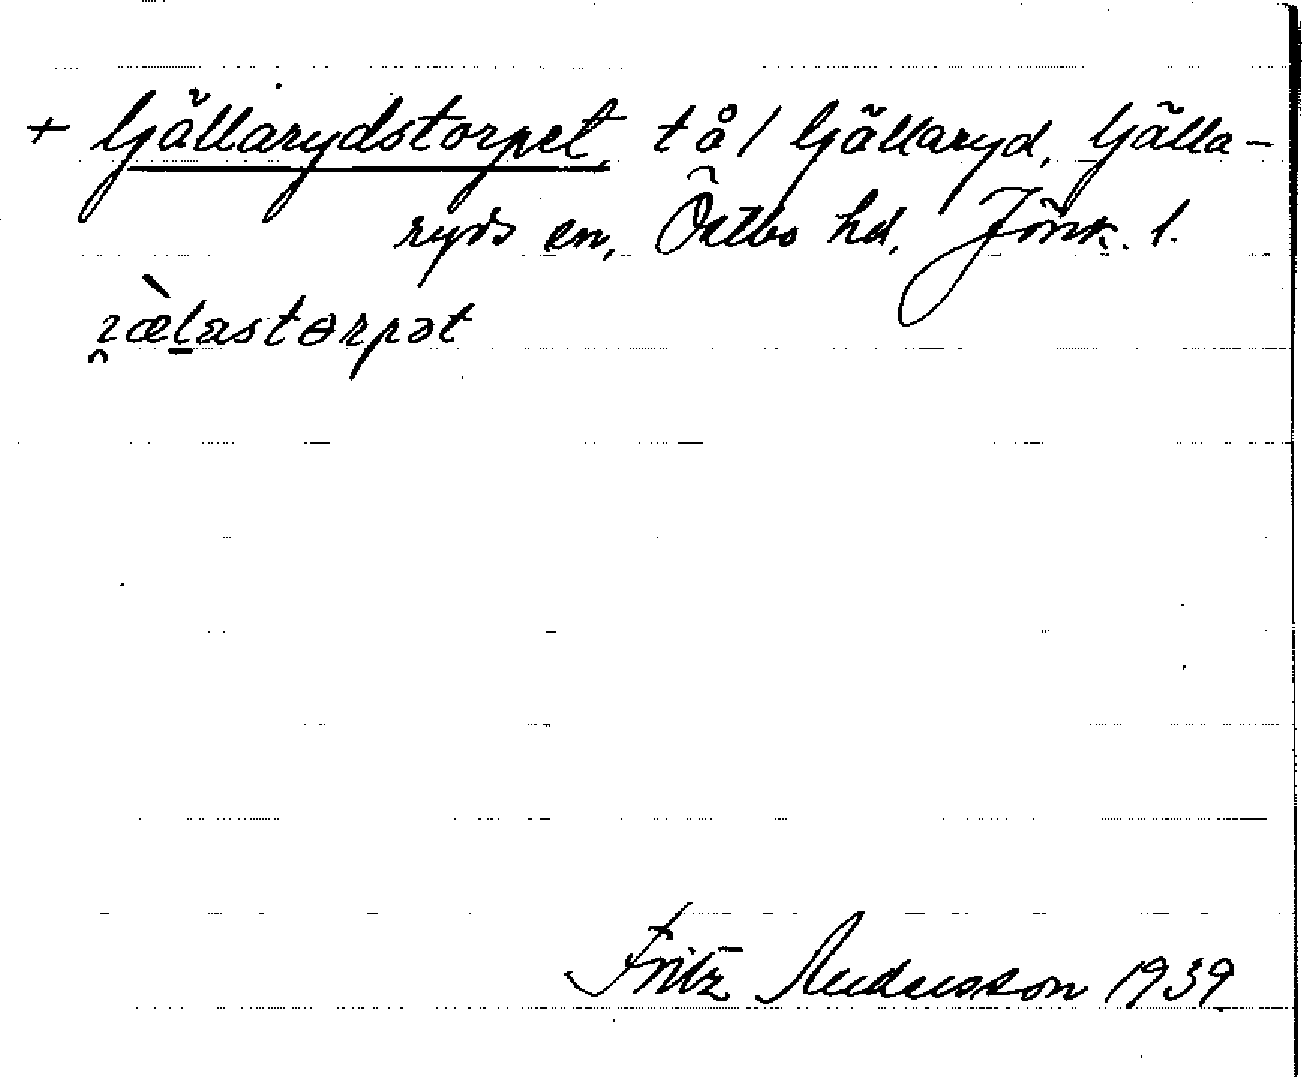 + Gällarydstorpet, t å / Gällaryd, Gälla-
ryds sn, Östbo hd, Jönk. l.
Fritz Andersson 1939